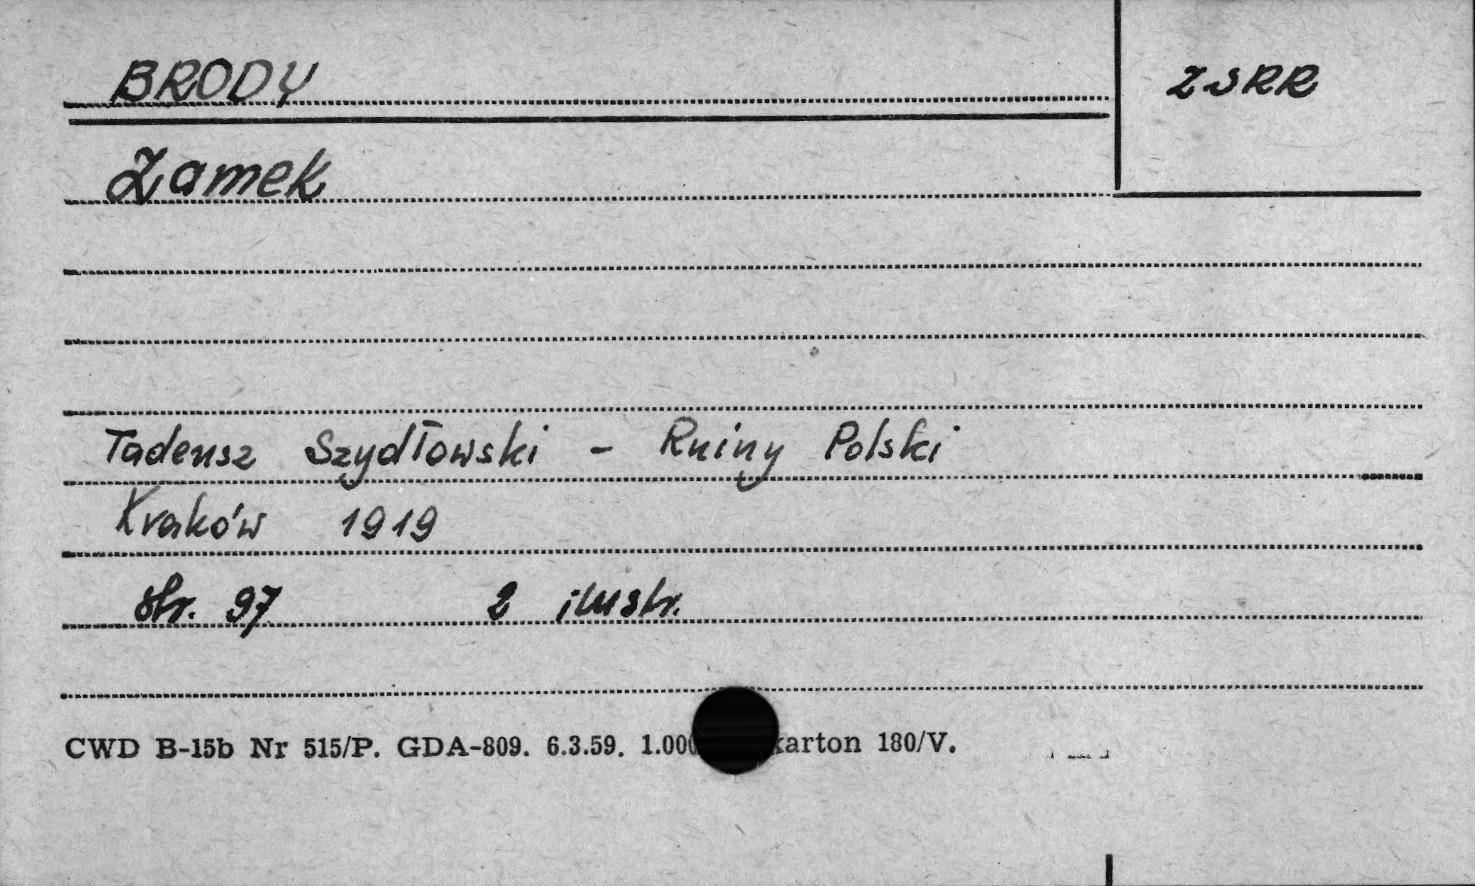 BRODY
ZSRR
Zamek
Tadeusz Szydłowski - Ruiny Polski
Kraków 1919
str. 97 2 ilustr.
CWD B-15b Nr 515/P. GDA-809. 6.3.59. karton 180/V.